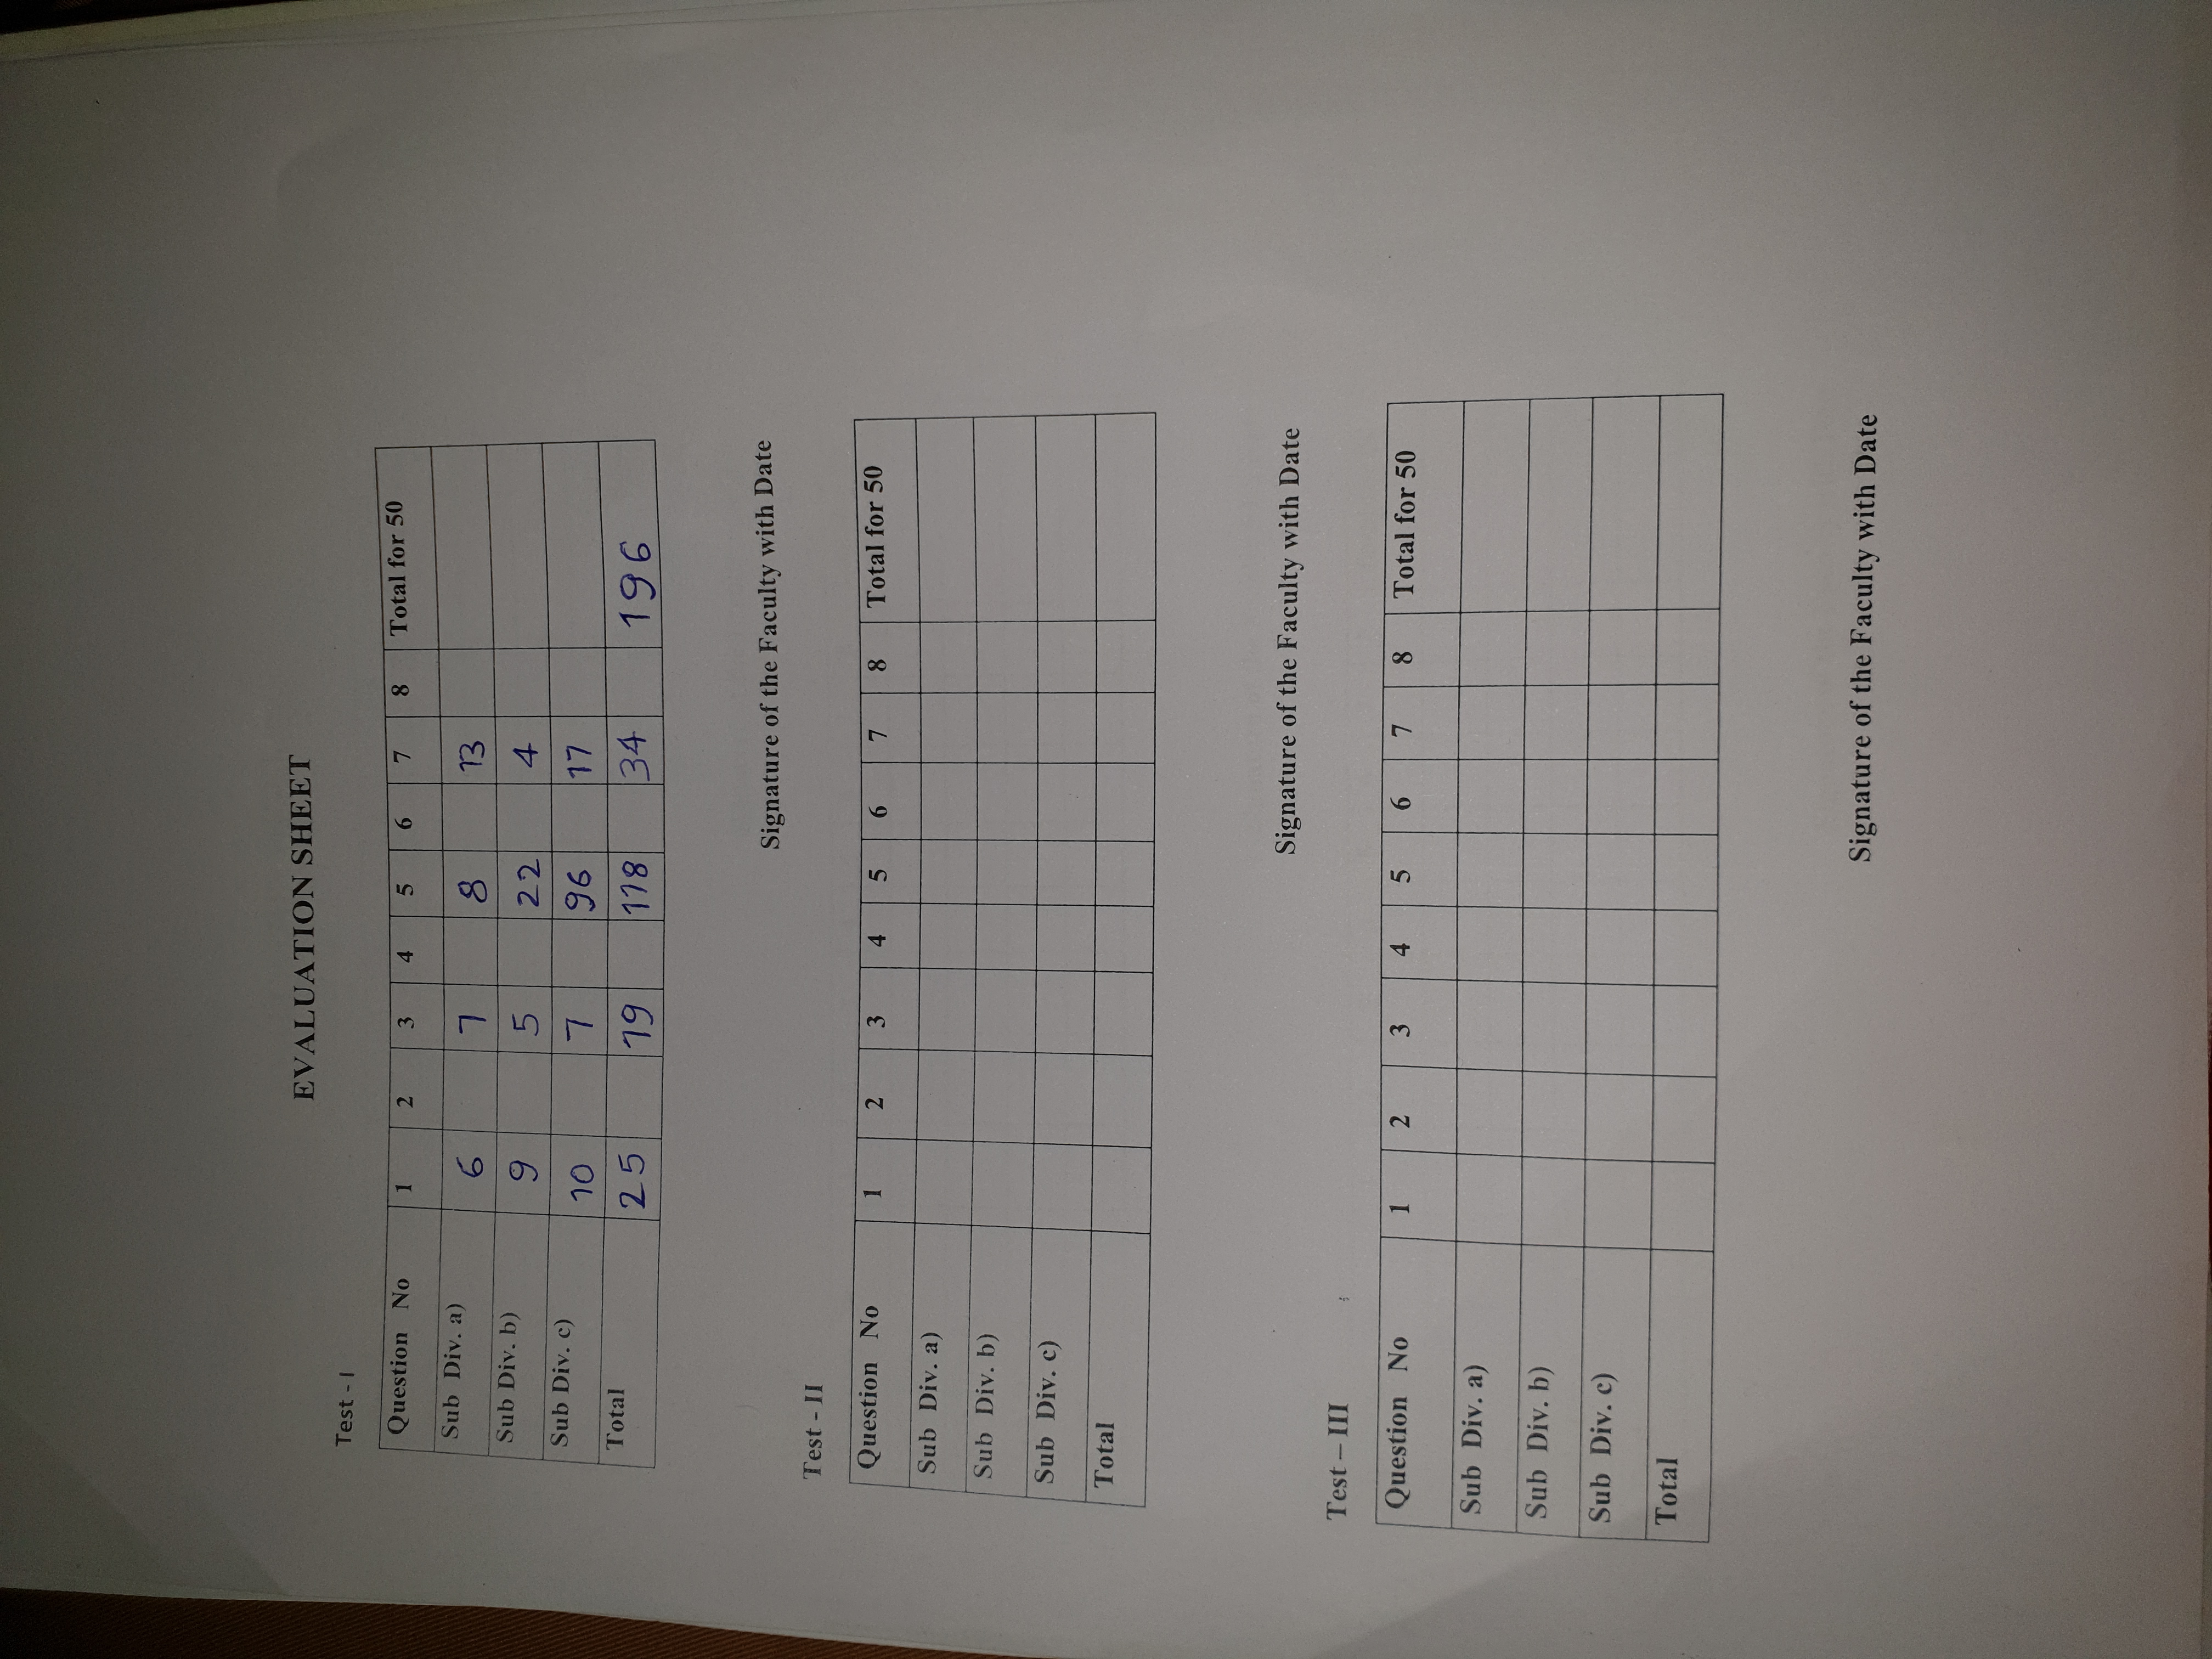 EVALUATION SHEET
Test - I
Question No 1 2 3 4 5 6 7 8 Total for 50
Sub Div. a) 6 7 8 13
Sub Div. b) 9 5 22 4
Sub Div. c) 10 7 96 17
Total 25 19 118 34 196
Signature of the Faculty with Date
Test - II
Question No 1 2 3 4 5 6 7 8 Total for 50
Sub Div. a)
Sub Div. b)
Sub Div. c)
Total
Signature of the Faculty with Date
Test – III
Question No 1 2 3 4 5 6 7 8 Total for 50
Sub Div. a)
Sub Div. b)
Sub Div. c)
Total
Signature of the Faculty with Date